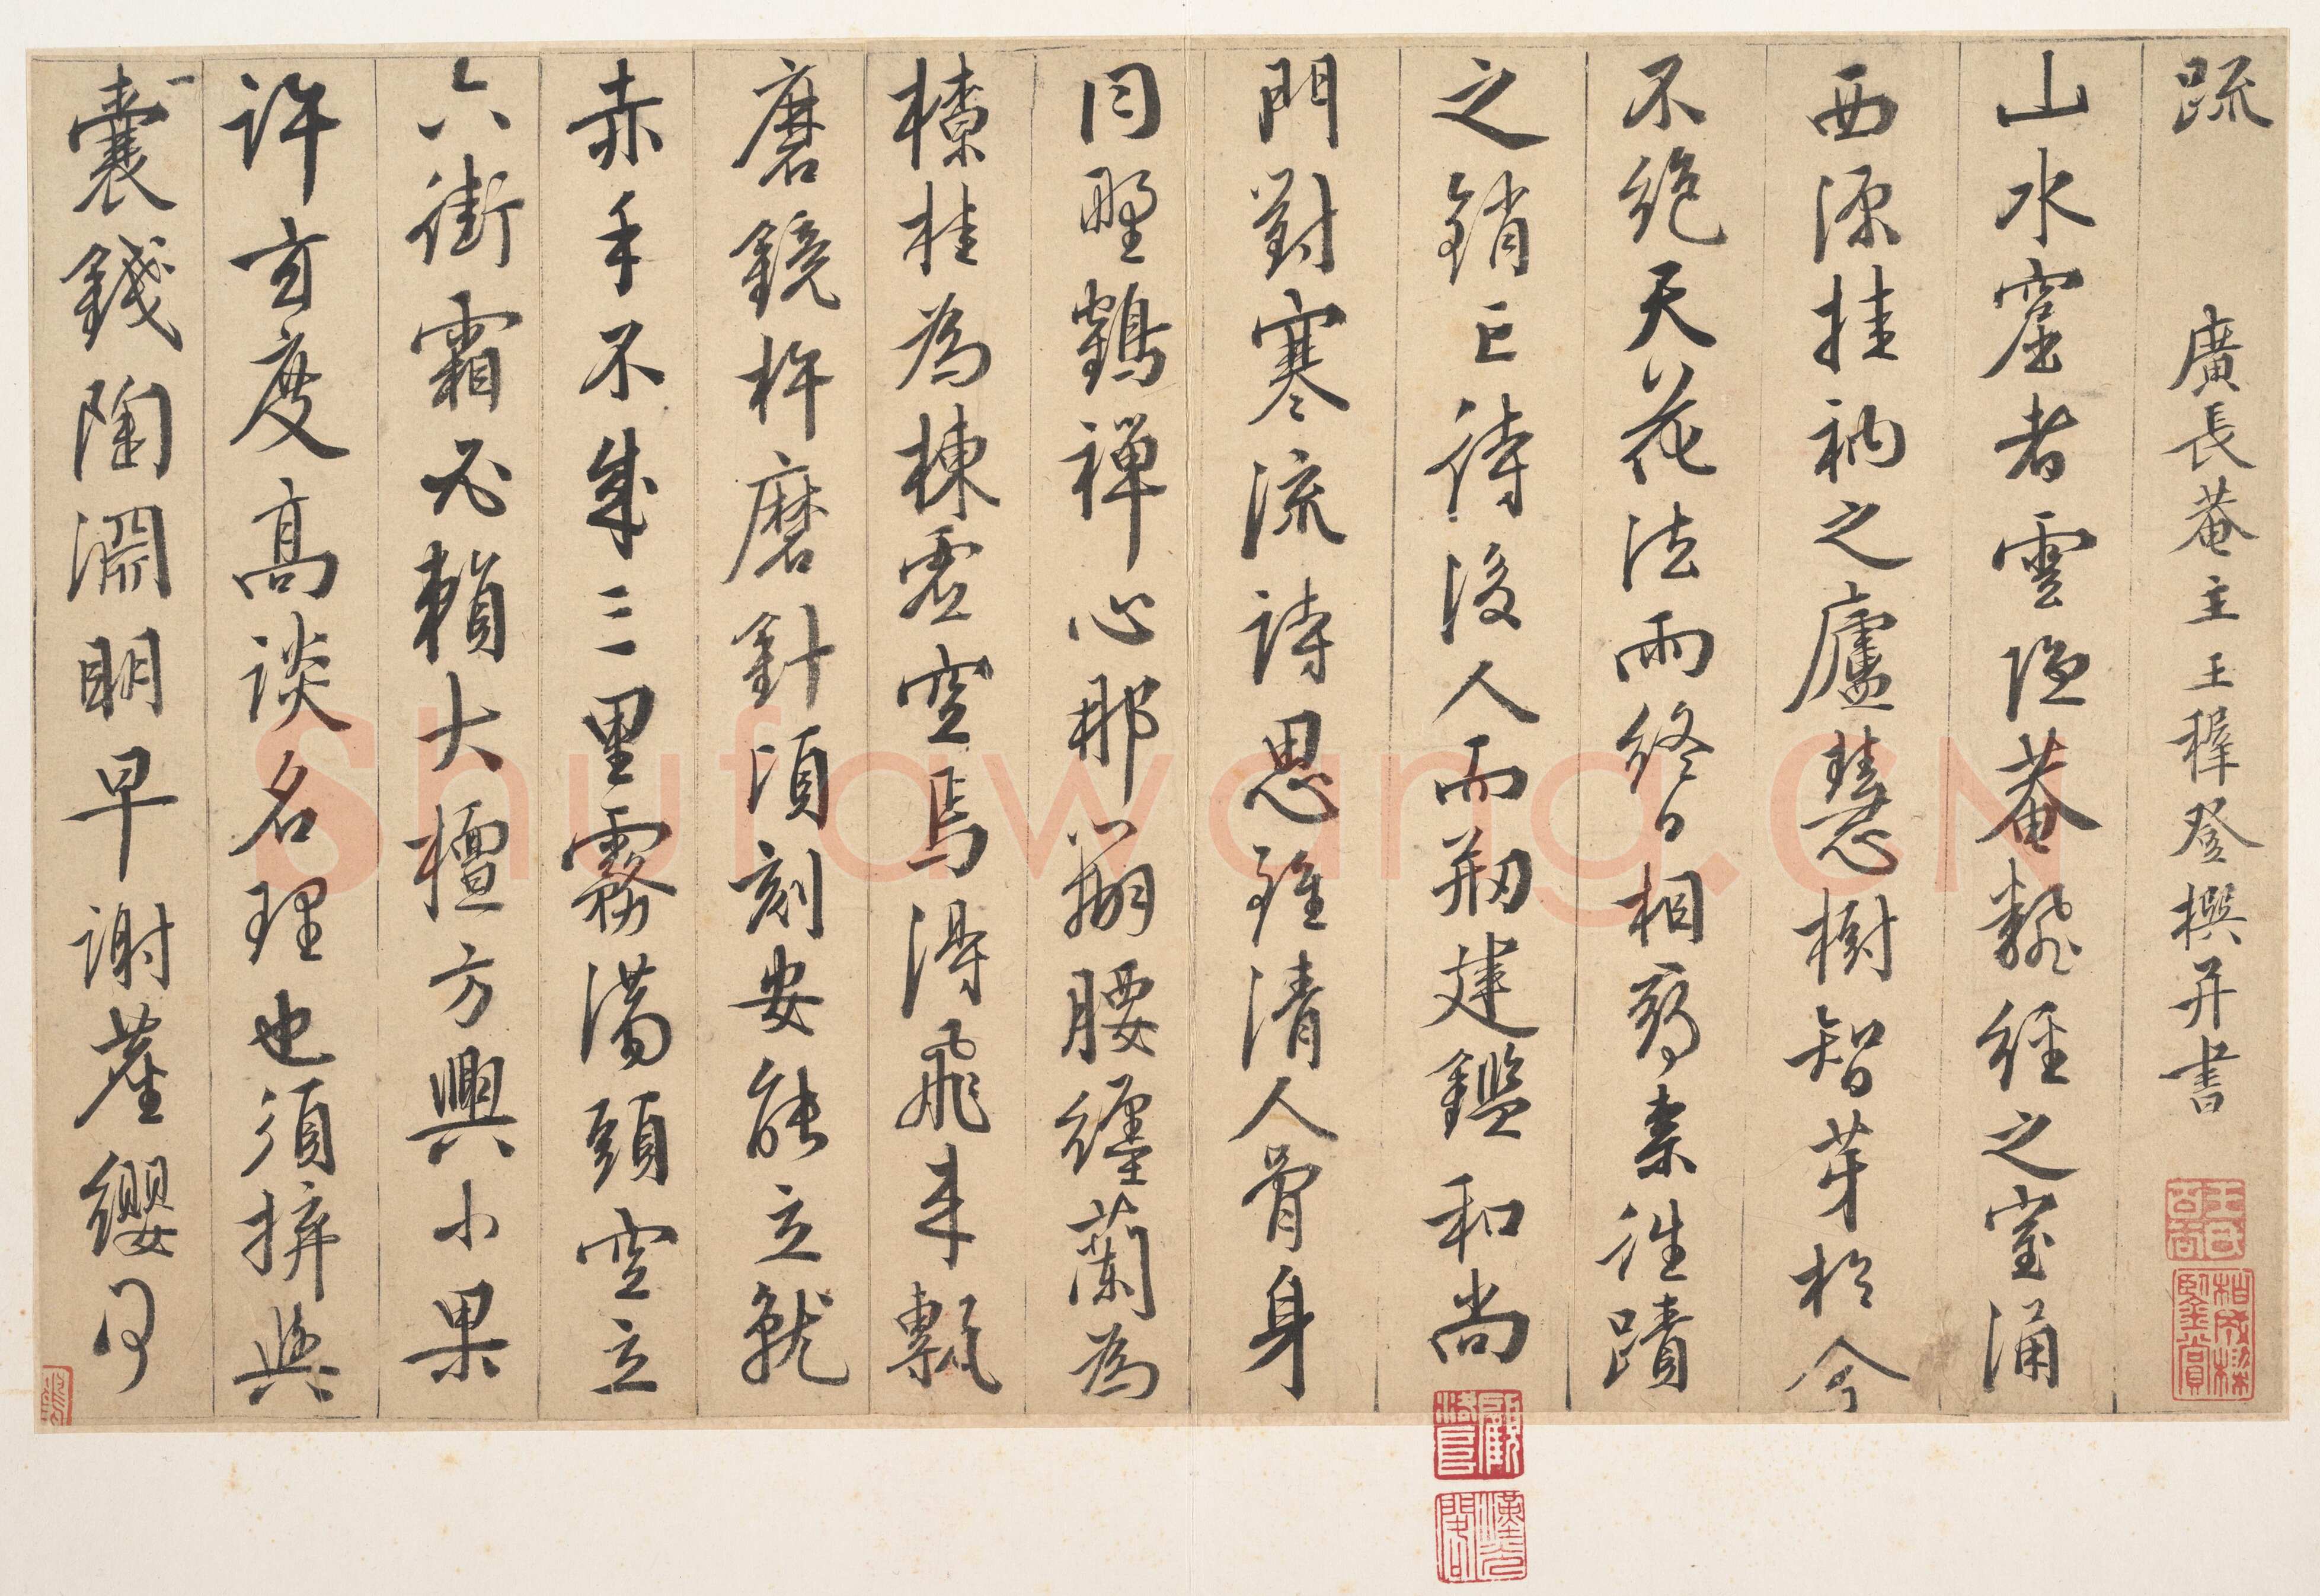 疏 廣長菴主王穉登撰并書
山水窟者雲隱菴飜經之室涌
西源挂衲之廬慧樹智芽於今
不絕天花法雨終日相柰往蹟
之銷亡待後人而剏建鑑和尚
門對寒流詩思雖清人骨身
同野鶴禪心那腰纏蘭為
橑桂為棟虛空焉得飛來甎
磨鏡杵磨針頃刻安能立就
赤手不成三里霧滿頭空立
六街霜必賴大檀方興小果
許玄度高談名理也須拚與
一囊錢陶淵明早謝塵纓何
顧洛阜
漢光閣
Shufawang.CN